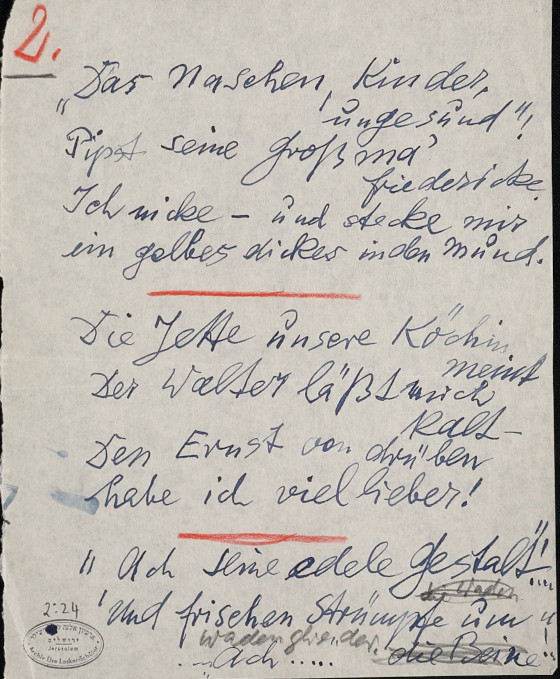 2.
„Das Naschen, Kinder,
ungesund"!
Pipst seine Großma'
Friedericke.
Ich nicke – und stecke mir
ein gelbes dickes in den Mund.
Die Jette unsere Köchin
meint
Der Walter läßt mich
kalt –
Den Ernst von drüben
habe ich viel lieber!
" Ach seine edele Gestalt"....
die Waden
'Und frischen Strümpfe um
wadenglieder.
.. Ach ..... die Beine"
2:24
Jerusalem